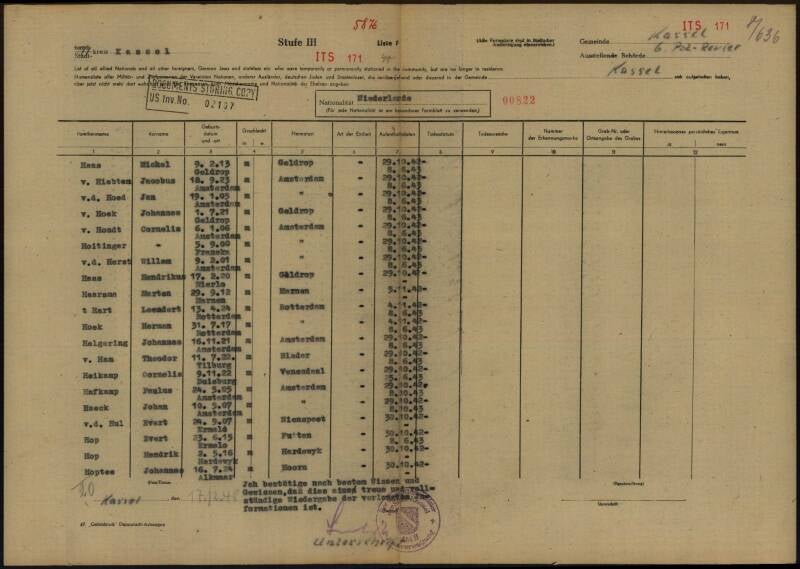 5876
Kassel
Stufe III
Liste
ITS 171
(Alle Formulare sind in 3facher Ausfertigung einzureichen.)
Gemeinde Kassel
ITS 171
9/636
Ausstellende Behörde 6. Pol.-Revier
Kassel
Stadt-
kreis Kassel
List of all allied Nationals and all other foreigners, German Jews and stateless etc. who were temporarily or permanently stationed in the community, but are no longer in residence.
DOCUMENTS STORING COPY
US Inv. No. 02107
Nationalität Niederlande
(Für jede Nationalität ist ein besonderes Formblatt zu verwenden.)
00822
Familienname Vorname Geburts-datum und -ort Geschlecht m w Heimatort Art der Einheit Aufenthaltsdaten Todesdatum Todesursache Nummer der Erkennungsmarke Grab-Nr. oder Ortsangabe des Grabes Hinterlassenes persönliches Eigentum ja nein
1 2 3 4 5 6 7 8 9 10 11 12
Haas Michel 9. 2.13 m Geldrop - 29.10.42-
Geldrop 8. 6.43
Jacobus 18. 9.23 m Amsterdam - 29.10.42-
Amsterdam 8. 6.43
v.d. Hoed Jan 19. 1.05 m " - 29.10.42-
Amsterdam 8. 6.43
v. Hoek Johannes 1. 7.21 m Geldrop - 29.10.42-
Geldrop 8. 6.43
v. Hondt Cornelis 6. 1.06 m Amsterdam - 29.10.42-
Amsterdam 8. 6.43
Hoitinger " 5. 9.00 m " - 29.10.42-
8. 6.43
v.d. Horst Willem 9. 2.01 m " - 29.10.42-
Amsterdam 8. 6.43
Haas Hendrikus 17. 2.20 m Geldrop - 29.10.42-
Mierlo
Haarsma Marten 29. 9.12 m - 5.11.42-
t Hart Leendert 13. 4.24 m Rotterdam - 4.11.42-
Rotterdam 8. 6.43
Hoek Herman 31. 7.17 m " - 4.11.42-
Rotterdam 8. 6.43
Helgering Johannes 16.11.21 m Amsterdam - 29.10.42-
Amsterdam 8. 6.43
v. Ham Theodor 11. 7.22 m Blader - 29.10.42-
Tilburg 8. 6.43
Heikamp Cornelis 9.11.22 m Venendaal - 29.10.42-
Duisburg 8. 6.43
Hafkamp Paulus 24. 5.05 m Amsterdam - 29.10.42-
Amsterdam 8. 6.43
Haeck Johan 10. 5.07 m " - 29.10.42-
Amsterdam 8. 6.43
v.d. Hul Evert 24. 9.07 m - 30.10.42-
Hop Evert 23. 6.15 m Putten - 30.10.42-
Ermelo 8. 6.43
Hop Hendrik 2. 5.16 m Hardewyk - 30.10.42-
Hardewyk
Hoptee Johannes 16. 7.24 m Hoorn - 30.10.42-
Alkmaar
20
Kassel, den 17.12.48
Jch bestätige nach bestem Wissen und
Gewissen, daß dies eine treue und voll-
ständige Wiedergabe der verlangten In-
formationen ist.
Unterschrift